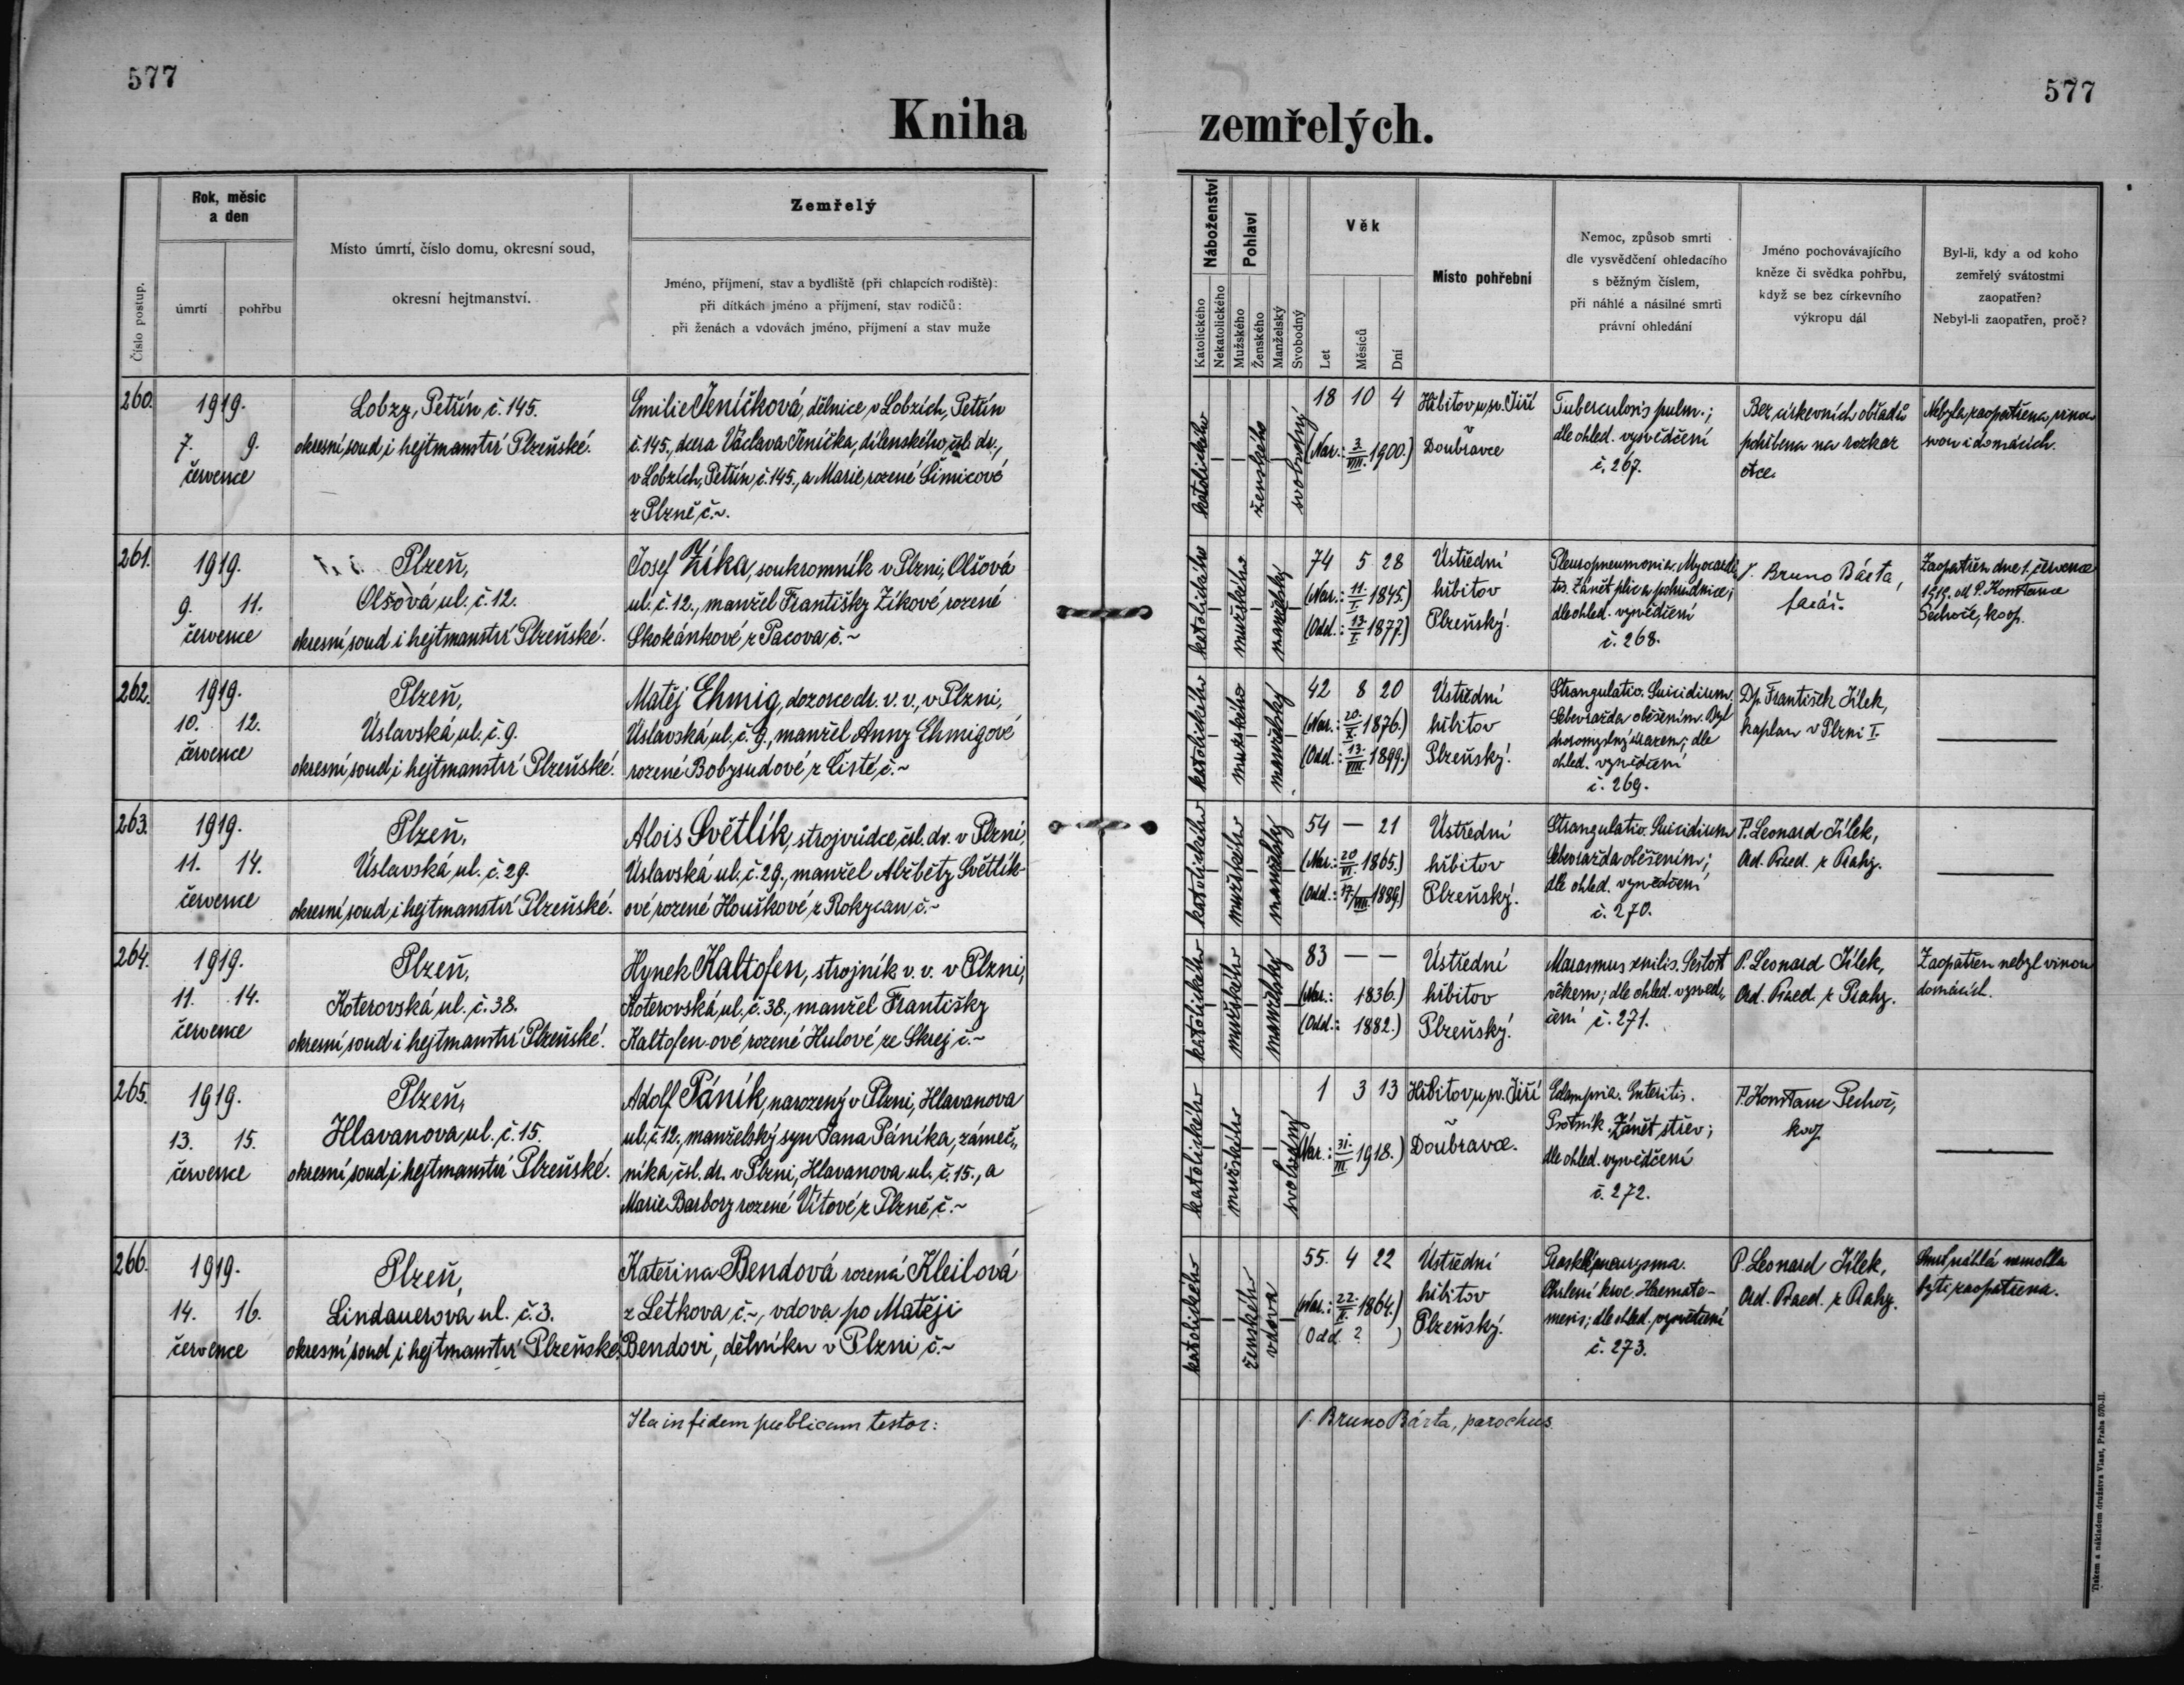 577
577
Kniha zemřelých.
Číslo postup.
Rok, měsíc
a den
úmrtí
pohřbu
Místo úmrtí, číslo domu, okresní soud,
okresní hejtmanství.
Zemřelý
Jméno, příjmení, stav a bydliště (při chlapcích rodiště):
při dítkách jméno a příjmení, stav rodičů:
při ženách a vdovách jméno, příjmení a stav muže
Náboženství
Katolického
Nekatolického
Pohlaví
Mužského
Ženského
Manželský
Svobodný
Věk
Let
Měsíců
Dní
Místo pohřební
Nemoc, způsob smrti
dle vysvědčení ohledacího
s běžným číslem,
při náhlé a násilné smrti
právní ohledání
Jméno pochovávajícího
kněze či svědka pohřbu,
když se bez církevního
výkropu dál
Byl-li, kdy a od koho
zemřelý svátostmi
zaopatřen?
Nebyl-li zaopatřen, proč?
260.
1919.
7. 9.
července
Lobzy, Petřín č. 145.
okresní soud i hejtmanství Plzeňské.
Emilie Jeníčková, dělnice v Lobzích, Petřín
č. 145., dcera Václava Jeníčka, dílenského čsl. dr.,
v Lobzích, Petřín, č. 145., a Marie, rozené Šimicové
z Plzně č. ~.
katolického
ženského
svobodný
18 10 4
(Nar.: 3./VIII. 1900.)
Hřbitov u sv. Jiří
v Doubravce
Tuberculosis pulm.;
dle ohled. vysvědčení
č. 267.
Bez církevních obřadů
pohřbena na rozkaz
otce.
Nebyla zaopatřena vinou
svou i domácích.
261.
1919.
9. 11.
července
Plzeň,
Olšová ul. č. 12.
okresní soud i hejtmanství Plzeňské.
Josef Zíka, soukromník v Plzni, Olšová
ul. č. 12., manžel Františky Zíkové rozené
Skokánkové z Pacova, č. ~
katolického
mužského
manželský
74 5 28
(Nar.: 11./I. 1845.)
(Odd.: 13./I. 1877.)
Ústřední
hřbitov
Plzeňský.
Pleuropneumonia. Myocardi-
tis. Zánět plic a pohrudnice;
dle ohled. vysvědčení
č. 268.
P. Bruno Bárta,
farář.
Zaopatřen dne 1. července
1919. od P. Konstance
Pechoče, koop.
262.
1919.
10. 12.
července
Plzeň,
Úslavská ul. č. 9.
okresní soud i hejtmanství Plzeňské.
Matěj Ehmig, dozorce dr. v. v., v Plzni,
Úslavská ul. č. 9., manžel Anny Ehmigové
rozené Bobysudové z Čisté, č. ~
katolického
mužského
manželský
42 8 20
(Nar.: 20./X. 1876.)
(Odd.: 13./VIII. 1899.)
Ústřední
hřbitov
Plzeňský.
Strangulatio. Suicidium.
Sebevražda oběšením. Byl
choromyslný; dle
ohled. vysvědčení
č. 269.
Dp. František Jílek,
kaplan v Plzni I.
263.
1919.
11. 14.
července
Plzeň,
Úslavská ul. č. 29.
okresní soud i hejtmanství Plzeňské.
Alois Světlík, strojvůdce, čsl. dr. v Plzni,
Úslavská ul. č. 29., manžel Alžběty Světlík-
ové rozené Houškové z Rokycan, č. ~
katolického
mužského
manželský
54 — 21
(Nar.: 20/VI. 1865.)
(Odd.: 17./VIII. 1889.)
Ústřední
hřbitov
Plzeňský.
Strangulatio. Suicidium
Sebevražda oběšením;
dle ohled. vysvědčení
č. 270.
P. Leonard Jílek,
Ord. Praed. z Prahy.
264.
1919.
11. 14.
července
Plzeň,
Koterovská ul. č. 38.
okresní soud i hejtmanství Plzeňské.
Hynek Kaltofen, strojník v. v. v Plzni,
Koterovská ul. č. 38., manžel Františky
Kaltofen-ové rozené Hulové ze Skrej č. ~
katolického
mužského
manželský
83 — —
(Nar.: 1836.)
(Odd.: 1882.)
Ústřední
hřbitov
Plzeňský.
Marasmus senilis. Sešlost
věkem; dle ohled. vysvěd-
čení č. 271.
P. Leonard Jílek,
Ord. Praed. z Prahy.
Zaopatřen nebyl vinou
domácích.
265.
1919.
13. 15.
července
Plzeň,
Hlavanova ul. č. 15.
okresní soud i hejtmanství Plzeňské.
Adolf Páník, narozený v Plzni, Hlavanova
ul. č. 12., manželský syn Jana Páníka, zámeč-
níka, čsl. dr. v Plzni, Hlavanova ul. č. 15., a
Marie Barbory rozené Vítové z Plzně č. ~
katolického
mužského
svobodný
1 3 13
(Nar.: 31./III. 1918.)
Hřbitov u sv. Jiří
v Doubravce.
Eclampsia. Enteritis.
Psotník. Zánět střev;
dle ohled. vysvědčení
č. 272.
P. Konstanc Pechoč,
koop.
266.
1919.
14. 16.
července
Plzeň,
Lindauerova ul. č. 3.
okresní soud i hejtmanství Plzeňské.
Kateřina Bendová rozená Kleilová
z Letkova č. ~, vdova po Matěji
Bendovi, dělníku v Plzni č. ~
katolického
ženského
vdova
55. 4 22
(Nar.: 22./II. 1864.)
(Odd. ? )
Ústřední
hřbitov
Plzeňský.
Prasklé aneurysma.
Chrlení krve. Haemate-
mesis; dle ohled. vysvědčení
č. 273.
P. Leonard Jílek,
Ord. Praed. z Prahy.
Smrt náhlá nemohla
býti zaopatřena.
Ita in fidem publicam testor:
P. Bruno Bárta, parochus
Tiskem a nákladem družstva Vlast, Praha 570-II.